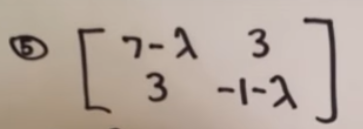 ⑤ [ 7-λ 3
3 -1-λ ]